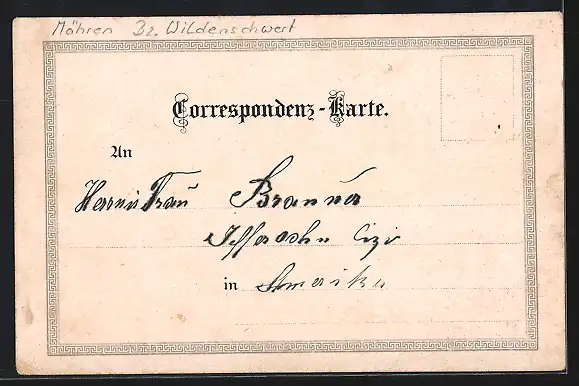 Mähren Bz. Wildenschwert
Correspondenz-Karte.
An
Herrn Frau Branna
in Amerika